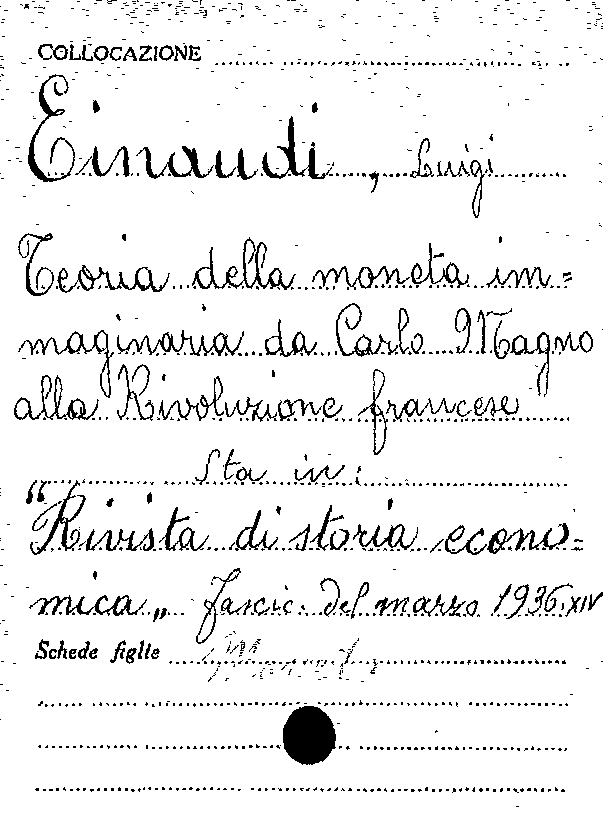 COLLOCAZIONE
Einaudi, Luigi
Teoria della moneta im=
maginaria da Carlo Magno
alla Rivoluzione francese
Sta in:
“Rivista di storia econo=
mica„ fascic. del marzo 1936.XIV
Schede figlie Moneta